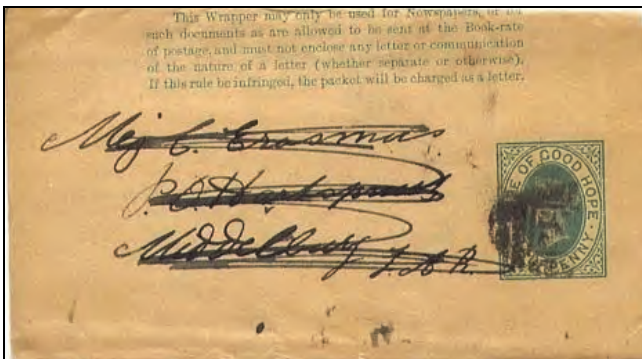 This Wrapper may only be used for Newspapers, or
such documents as are allowed to be sent at the Book-rate
of postage, and must not enclose any letter or communication
of the nature of a letter (whether separate or otherwise).
If this rule be infringed, the packet will be charged as a letter.
Mej C. Erasmus
P.O.
Middelburg Z.A.R.
OF GOOD HOPE
PENNY